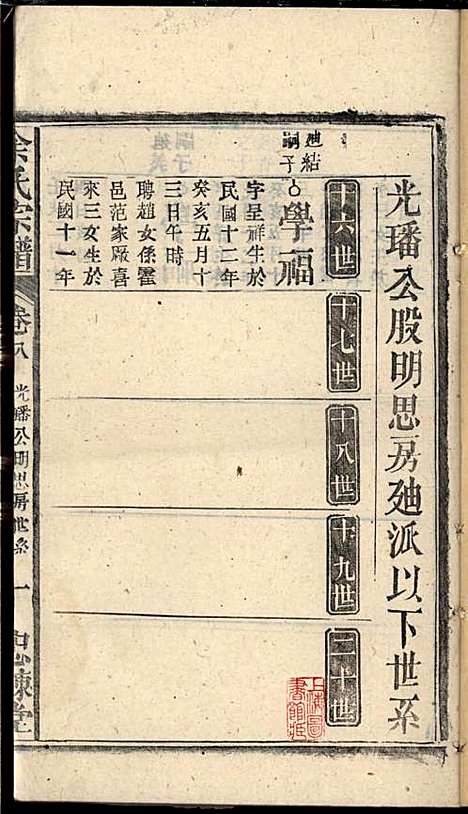 光璠公股明思房廸派以下世系
十六世
十七世
十八世
十九世
二十世
廸結
嗣子
學福
字呈祥生於
民國十二年
癸亥五月十
三日午時
聘趙女係霍
邑范家嚴喜
來三女生於
民國十一年
余氏宗譜
卷八
光璠公明思房世系
一
思悚堂
上海圖
書館藏